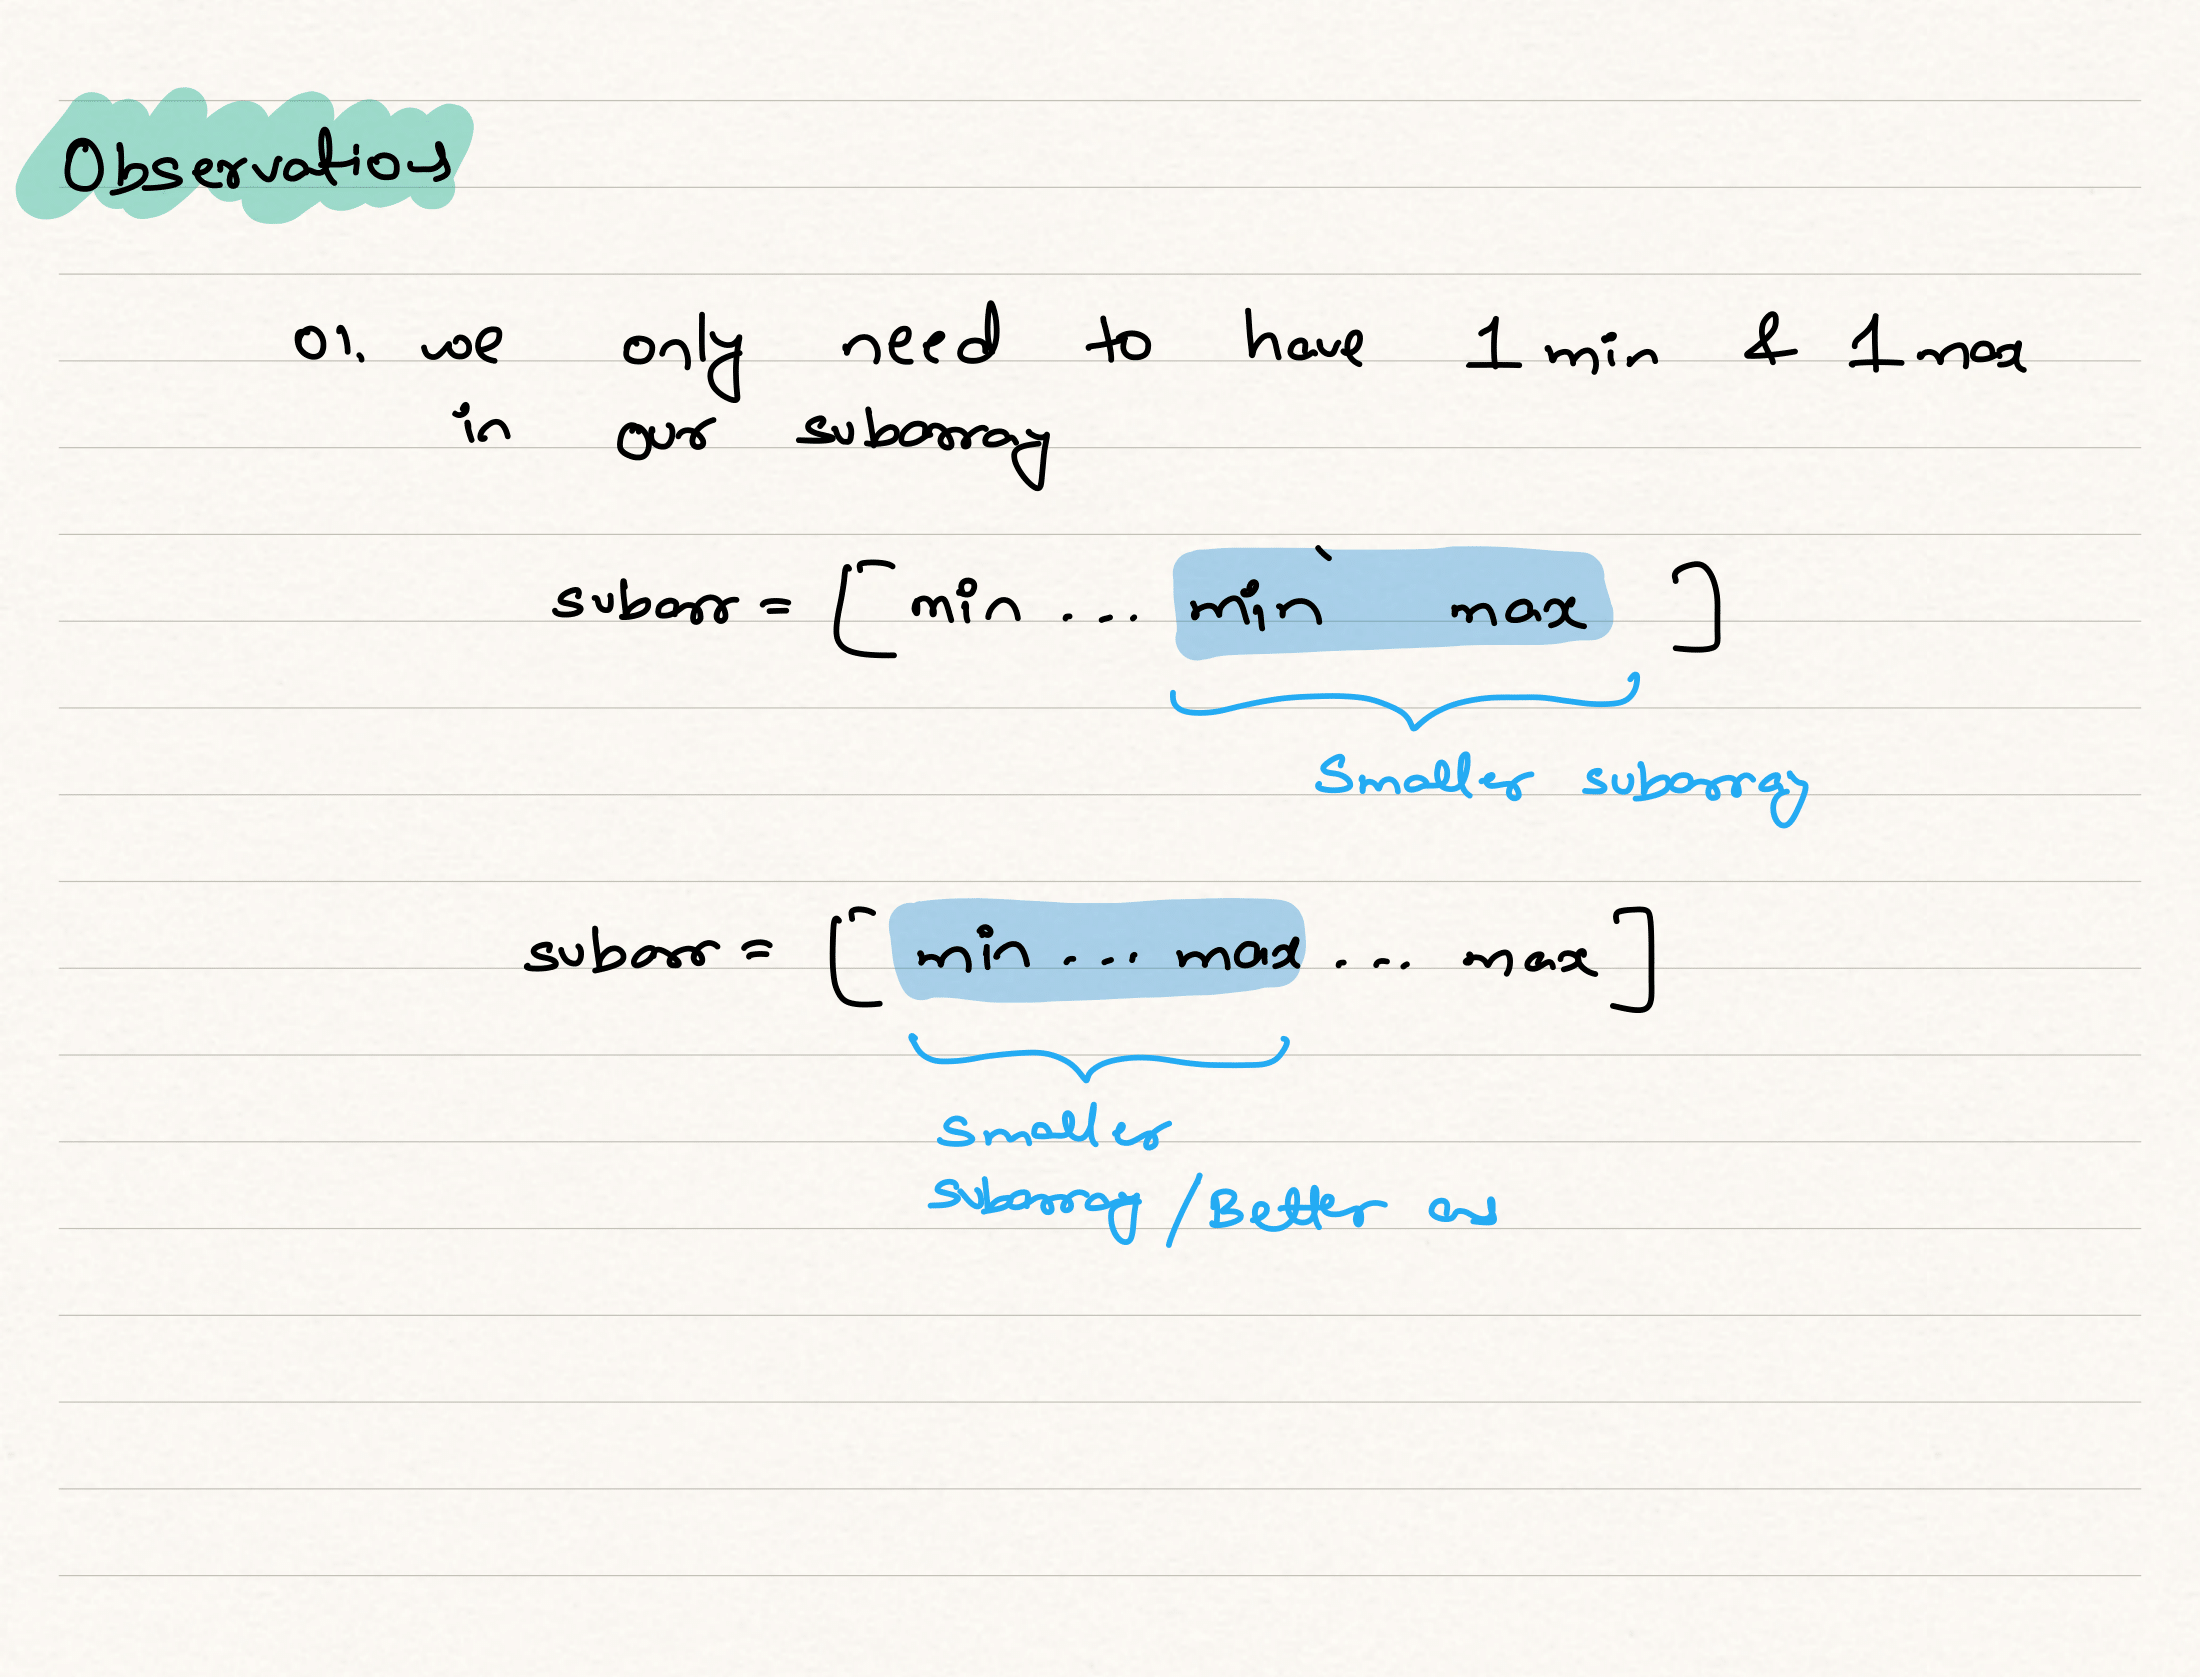 Observations
01. we only need to have 1 min & 1 max
in our subarray
subarr = [ min ... min max ]
Smaller subarray
subarr = [ min ... max ... max ]
Smaller
subarray / Better ans